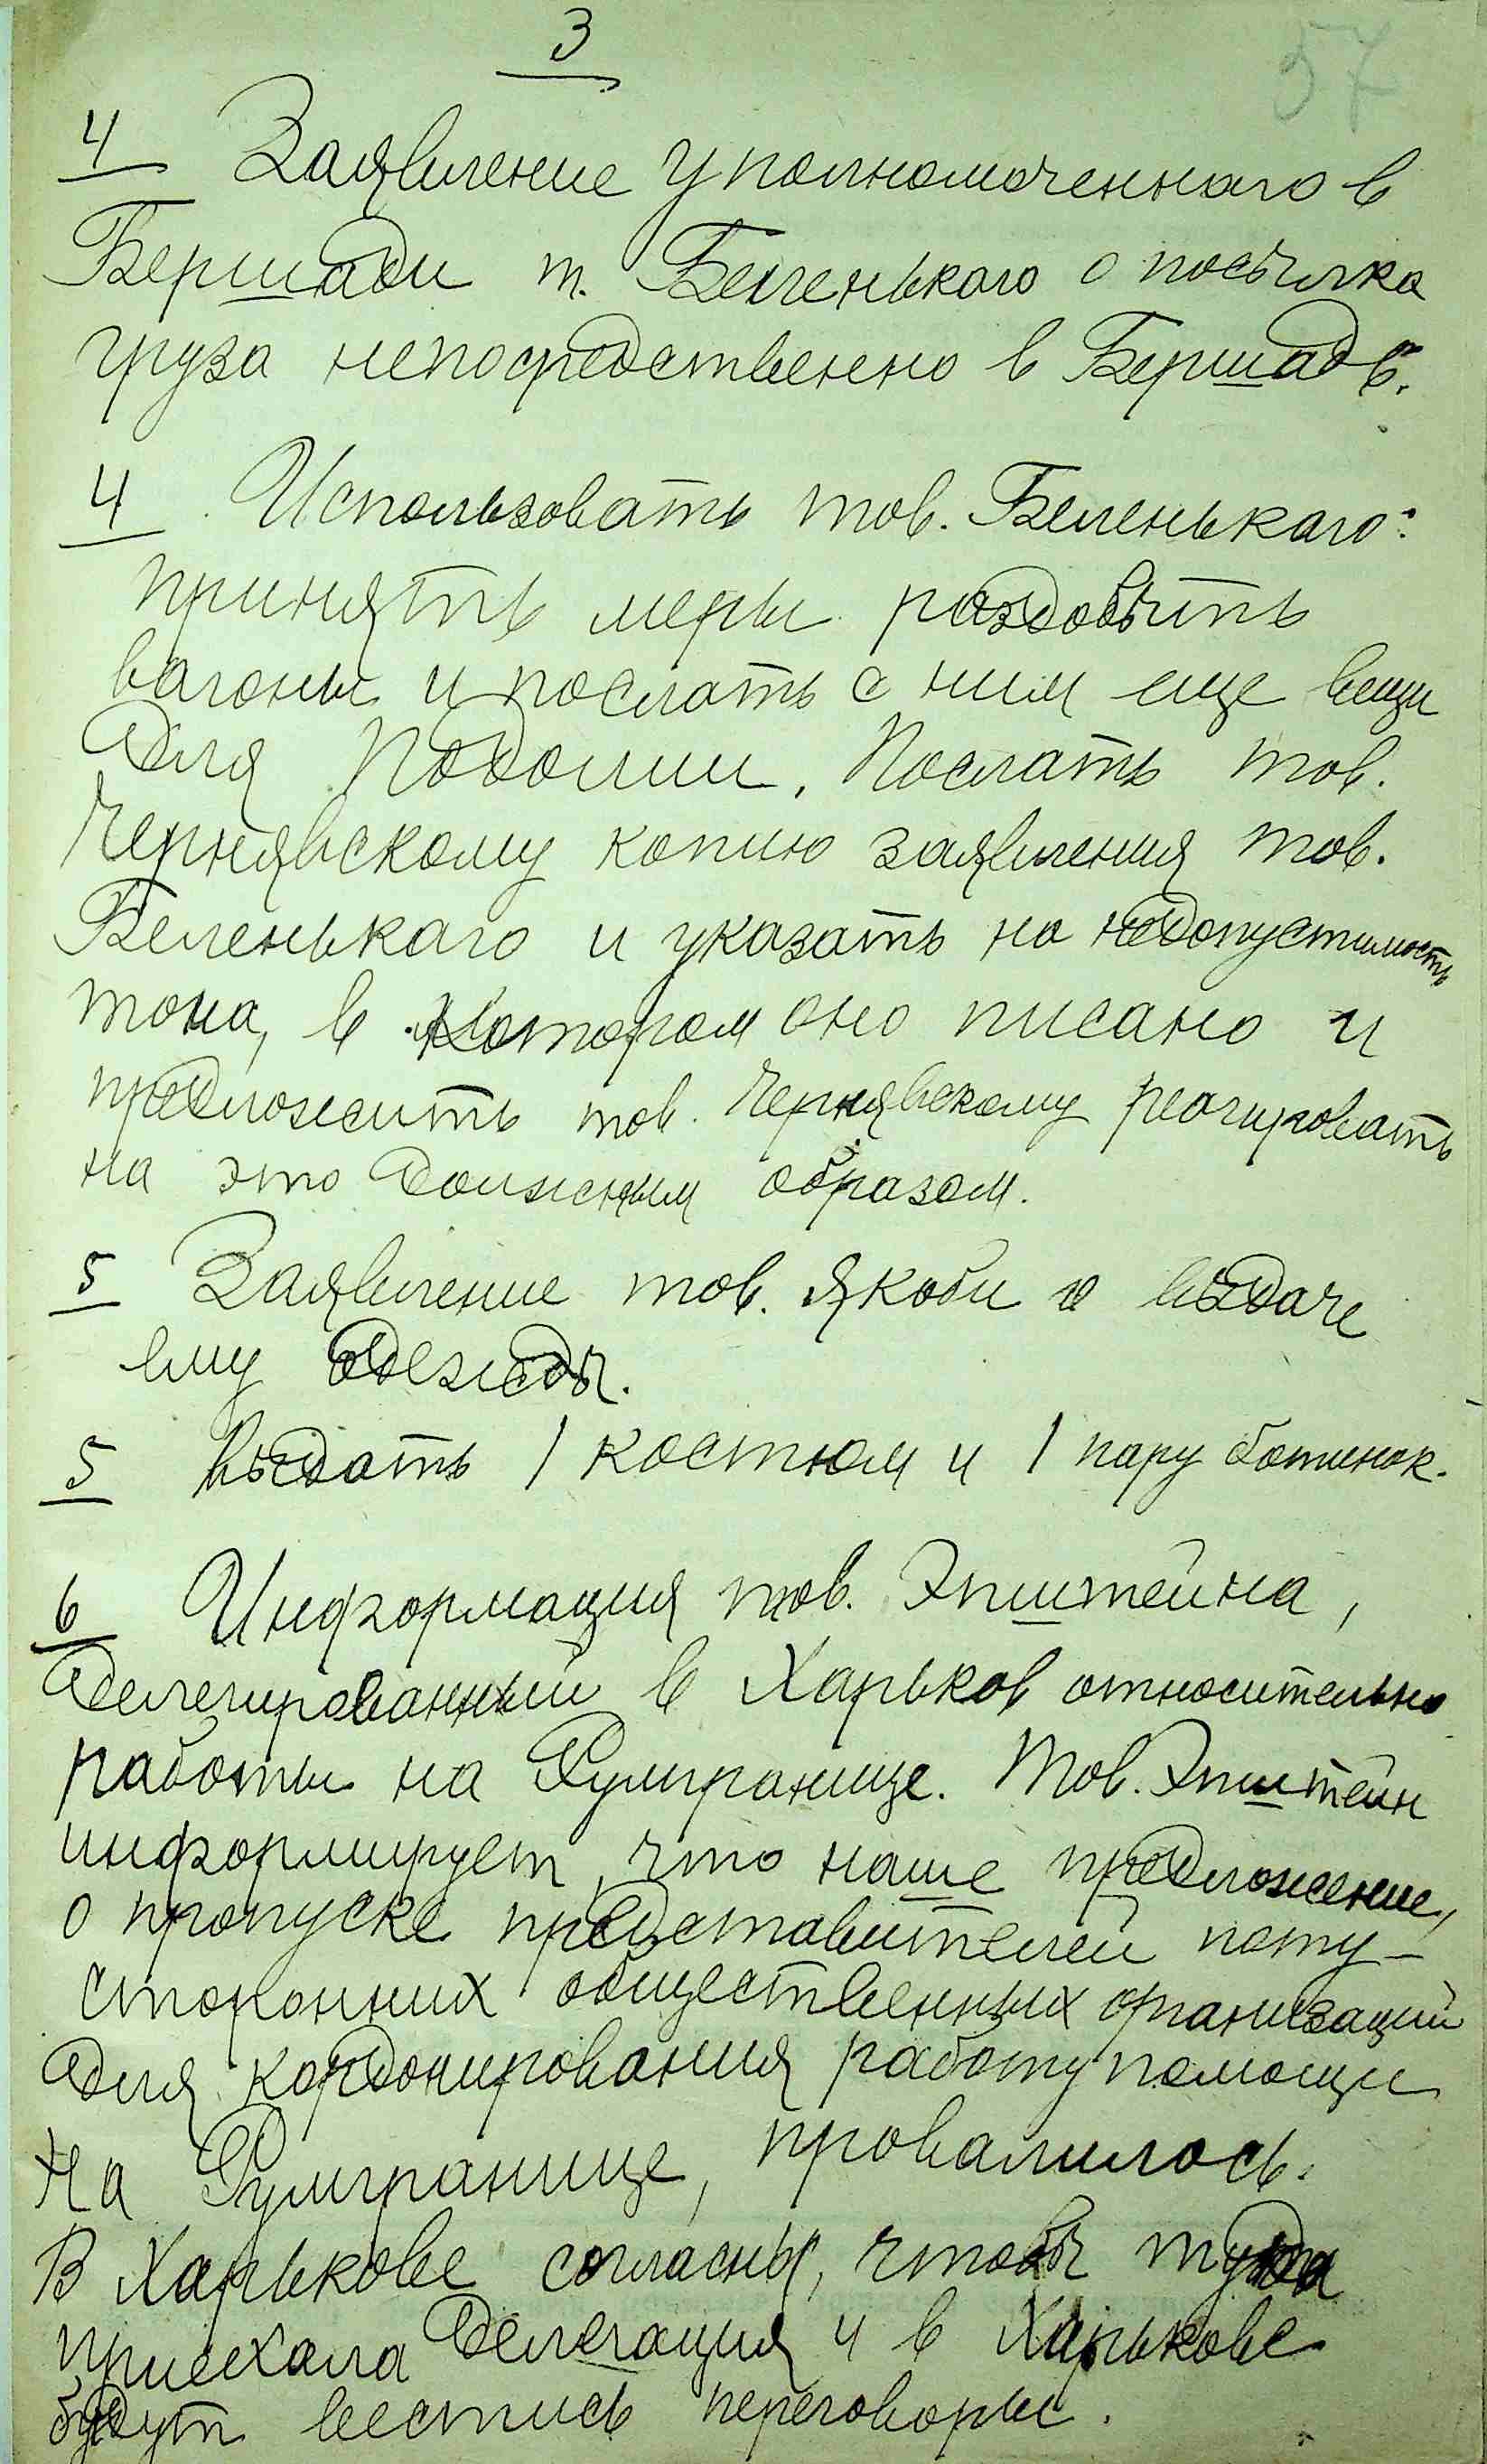 3
57
4 Заявление уполномоченнаго в
Бершади т. Беленькаго о посылка
груза непосредственно в Бершадь.
4 Использовать тов. Беленькаго:
принять меры раздобыть
вагоны и послать с ним еще вещи
для Подолии. Послать тов.
Чернявскому копию заявления тов.
Беленькаго и указать на недопустимость
тона, в котором оно писано и
предложить тов. Чернявскому реагировать
на это должным образом.
5 Заявление тов. Якоби о выдаче
ему одежды.
5 Выдать 1 костюм и 1 пару ботинок.
6 Информация тов. Эпштейна,
делегированный в Харьков относительно
работы на Румгранице. Тов. Эпштейн
информирует, что наше предложение,
о пропуске представителей поту-
сторонних общественных организаций
для кордонирования работу помощи
на Румгранице, провалилось.
В Харькове согласны, чтобы туда
приехала делегация и в Харькове
будут вестись переговоры.